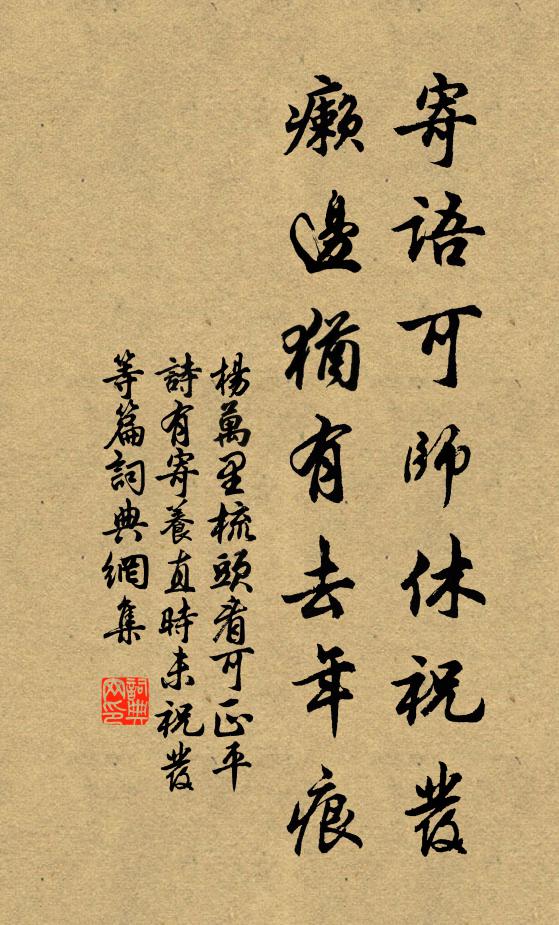 寄語可師休祝發
癩邊猶有去年痕
楊萬里梳頭看可正平
詩有寄養直時未祝發
等篇詞典網集
詞典网印